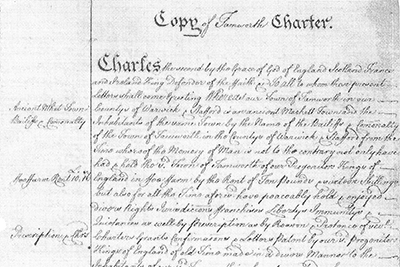 Copy of Tamworth Charter.
Charles the second by the Grace of God of England Scotland France
and Ireland King Defender of the Faith &c To all to whom these present
Letters shall come Greeting Whereas our Town of Tamworth in our
Countys of Warwick & Stafford is an ancient Market Town and the
Inhabitants of the same Town by the Name of the Bailiffs & Comonalty
of the Town of Tamworth in the Countys of Warwick & Stafford from the
Time whereof the Memory of Man is not to the contrary not only have
had & held the Town of Tamworth of our Progenitors Kings of
England in Fee Farm by the Rent of Ten Pounds Shillings
but also for all the Time afores'd have peaceably held & enjoyed
divers Rights Jurisdicions Franchises Libertys Immunitys &
as well by prescription as by Reason & Pretence of
Charters Grants Confirmacons & Letters Patent by our Progenitors
Kings of England of old Time made in divers Manner to the
Inhabitants of
Ancient Mket Town
Bailiffs & Comonalty
Fee Farm Rent £10.
Prescription &